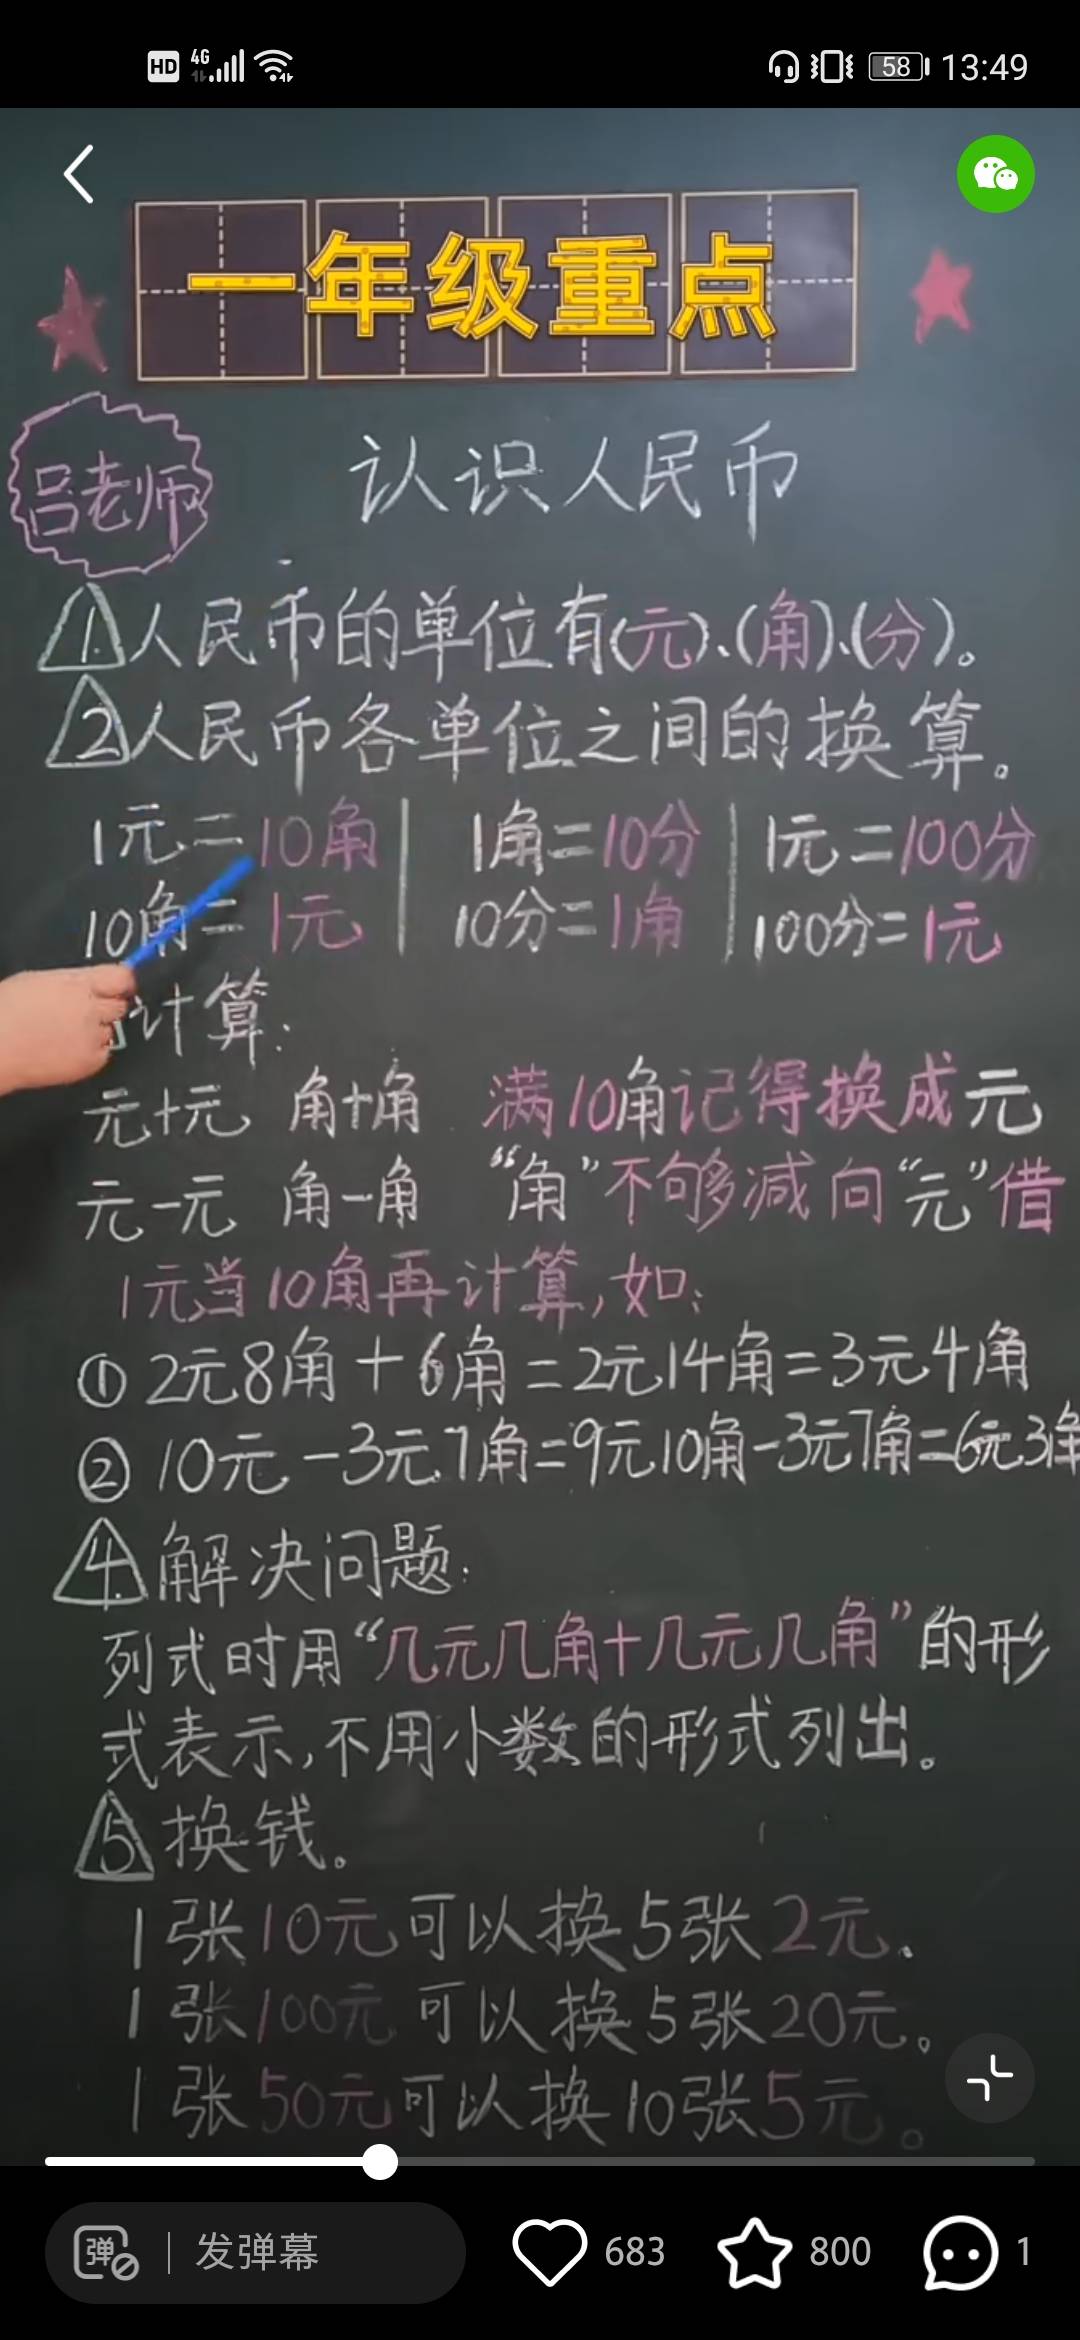 HD 4G 58 13:49
一年级重点
吕老师
认识人民币
1.人民币的单位有(元)、(角)、(分)。
2.人民币各单位之间的换算。
1元=10角 1角=10分 1元=100分
10角=1元 10分=1角 100分=1元
计算:
元+元 角+角 满10角记得换成元
元-元 角-角 “角”不够减向“元”借
1元当10角再计算,如:
① 2元8角+6角=2元14角=3元4角
② 10元-3元7角=9元10角-3元7角=6元3角
4.解决问题:
列式时用“几元几角+几元几角”的形
式表示,不用小数的形式列出。
5.换钱。
1张10元可以换5张2元.
1张100元可以换5张20元。
1张50元可以换10张5元。
弹 发弹幕 683 800 1